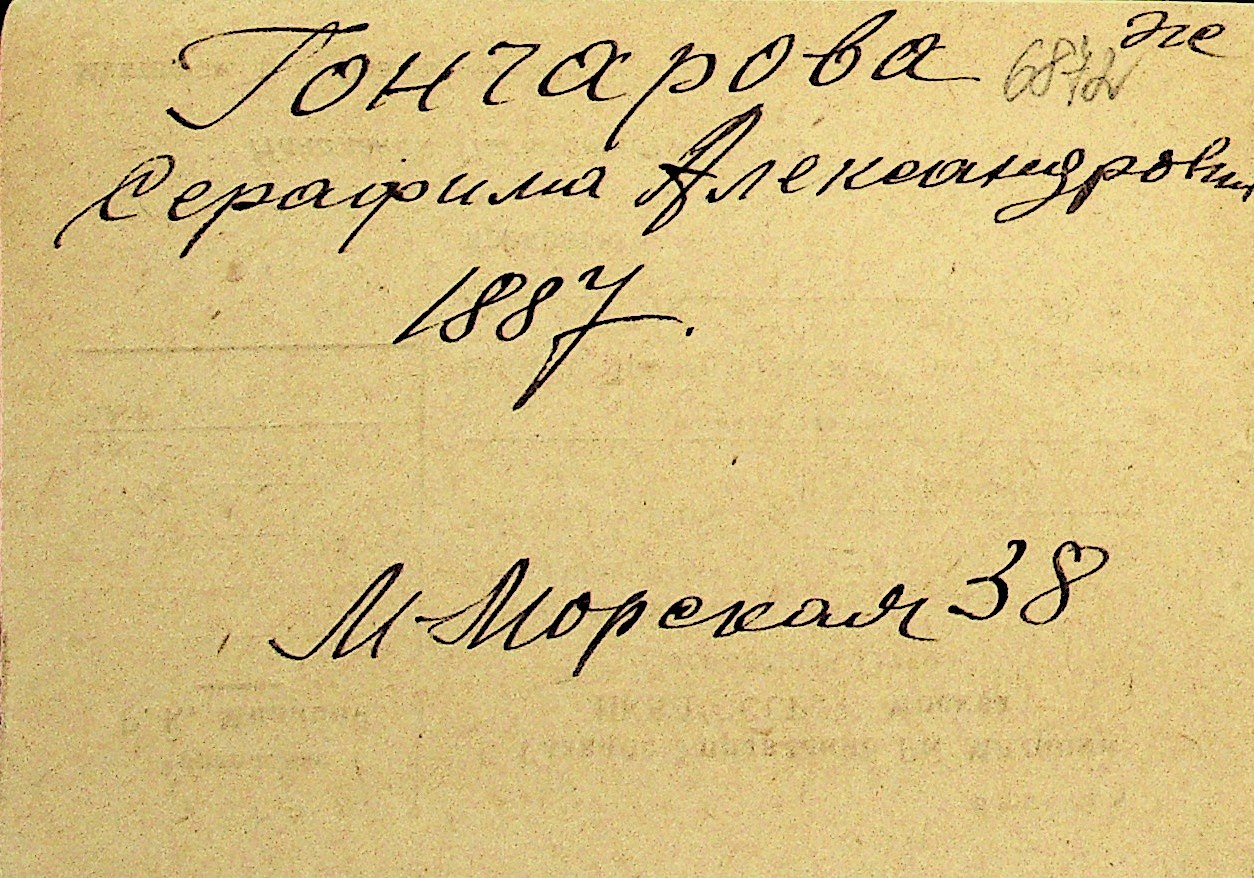 Гончарова же
Серафима Александровн
1887.
М-Морская 38